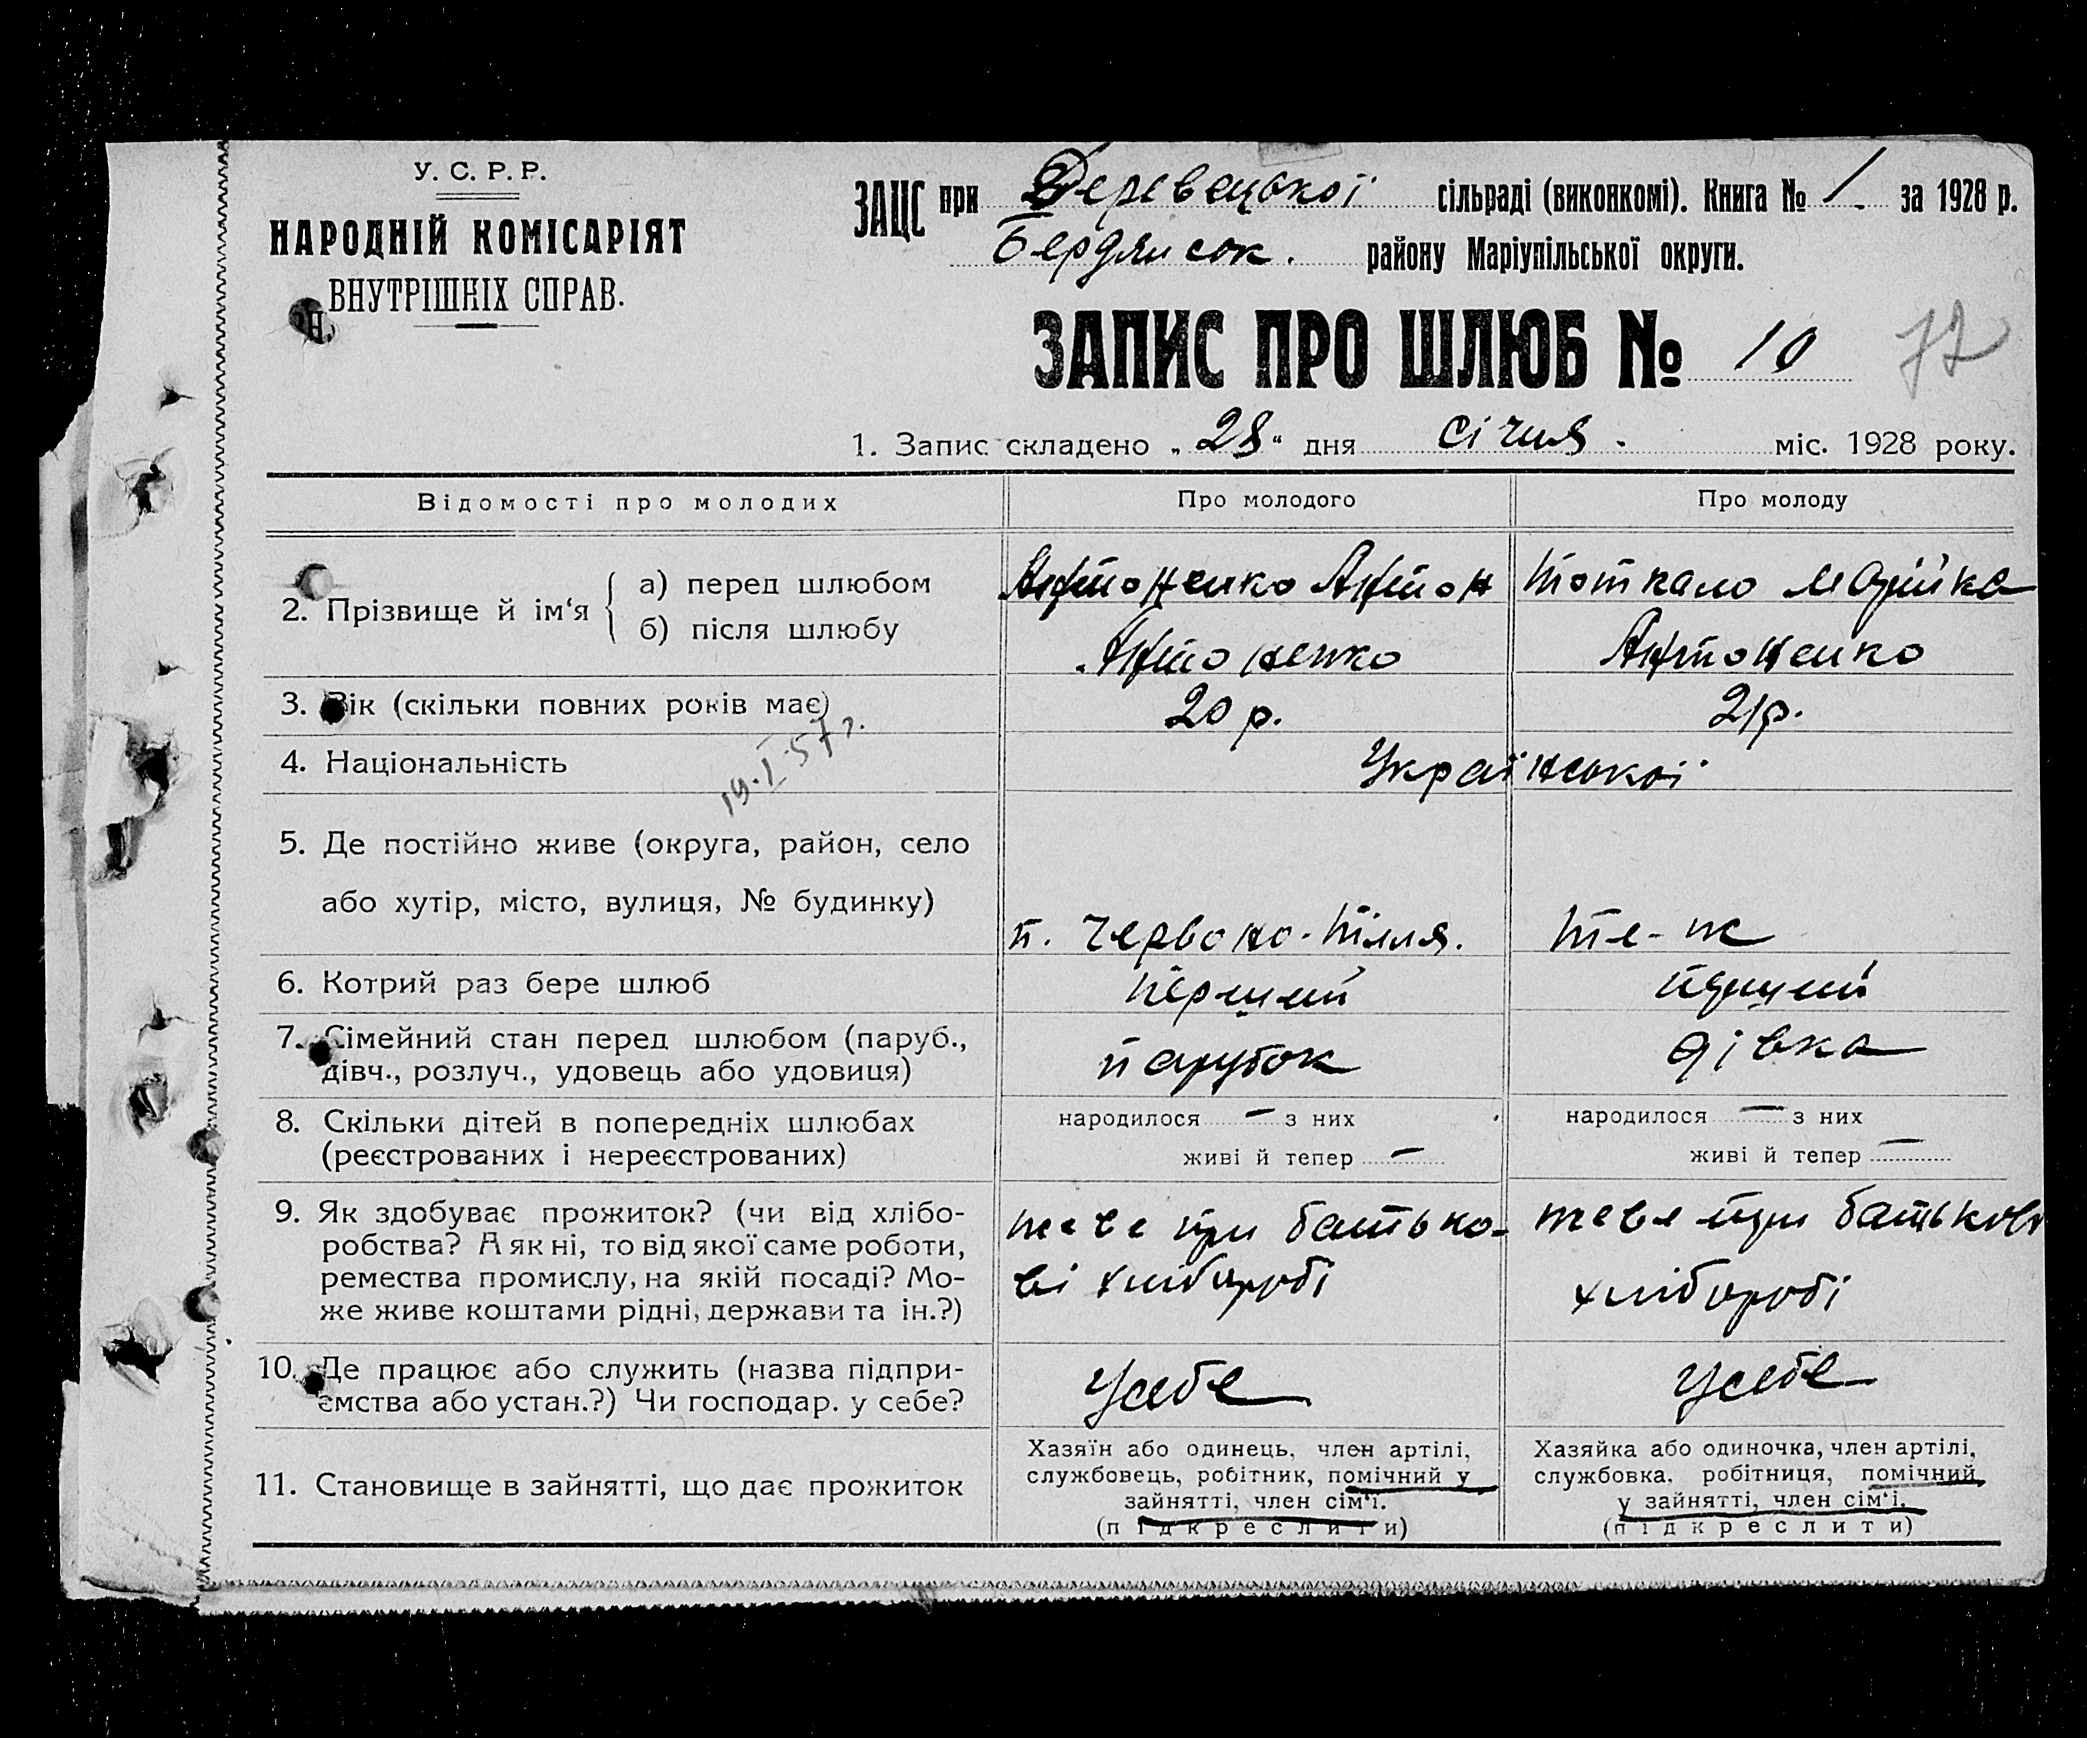 У. С. Р. Р.
НАРОДНІЙ КОМІСАРІЯТ
ВНУТРІШНІХ СПРАВ.
ЗАЦС при Деревецької сільраді (виконкомі). Книга № 1 за 1928 р.
Бердянсок. району Маріупільської округи.
ЗАПИС ПРО ШЛЮБ № 10
72
1. Запис складено „28“ дня січня. міс. 1928 року.
Відомості про молодих Про молодого Про молоду
2. Прізвище й ім‘я
а) перед шлюбом Антоненко Антон Марійка
б) після шлюбу Антоненко Антоненко
3. Вік (скільки повних років має) 20 р. 21 р.
19.I.57 г.
4. Національність Української
5. Де постійно живе (округа, район, село
або хутір, місто, вулиця, № будинку)
п. Червоно-Пілля. Те-ж
6. Котрий раз бере шлюб перший перший
7. Сімейний стан перед шлюбом (паруб.,
дівч., розлуч., удовець або удовиця) парубок дівка
8. Скільки дітей в попередніх шлюбах
(реєстрованих і нереєстрованих)
народилося — з них
живі й тепер —
народилося — з них
живі й тепер —
9. Як здобуває прожиток? (чи від хлібо-
робства? А як ні, то від якої саме роботи,
ремества промислу, на якій посаді? Мо-
же живе коштами рідні, держави та ін.?)
живе при батько-
ві хліборобі
живе при батькові
хліборобі
10. Де працює або служить (назва підпри-
ємства або устан.?) Чи господар. у себе?
У себе У себе
11. Становище в зайнятті, що дає прожиток
Хазяїн або одинець, член артілі,
службовець, робітник, помічний у
зайнятті, член сім‘ї.
(підкреслити)
Хазяйка або одиночка, член артілі,
службовка, робітниця, помічний
у зайнятті, член сім‘ї.
(підкреслити)